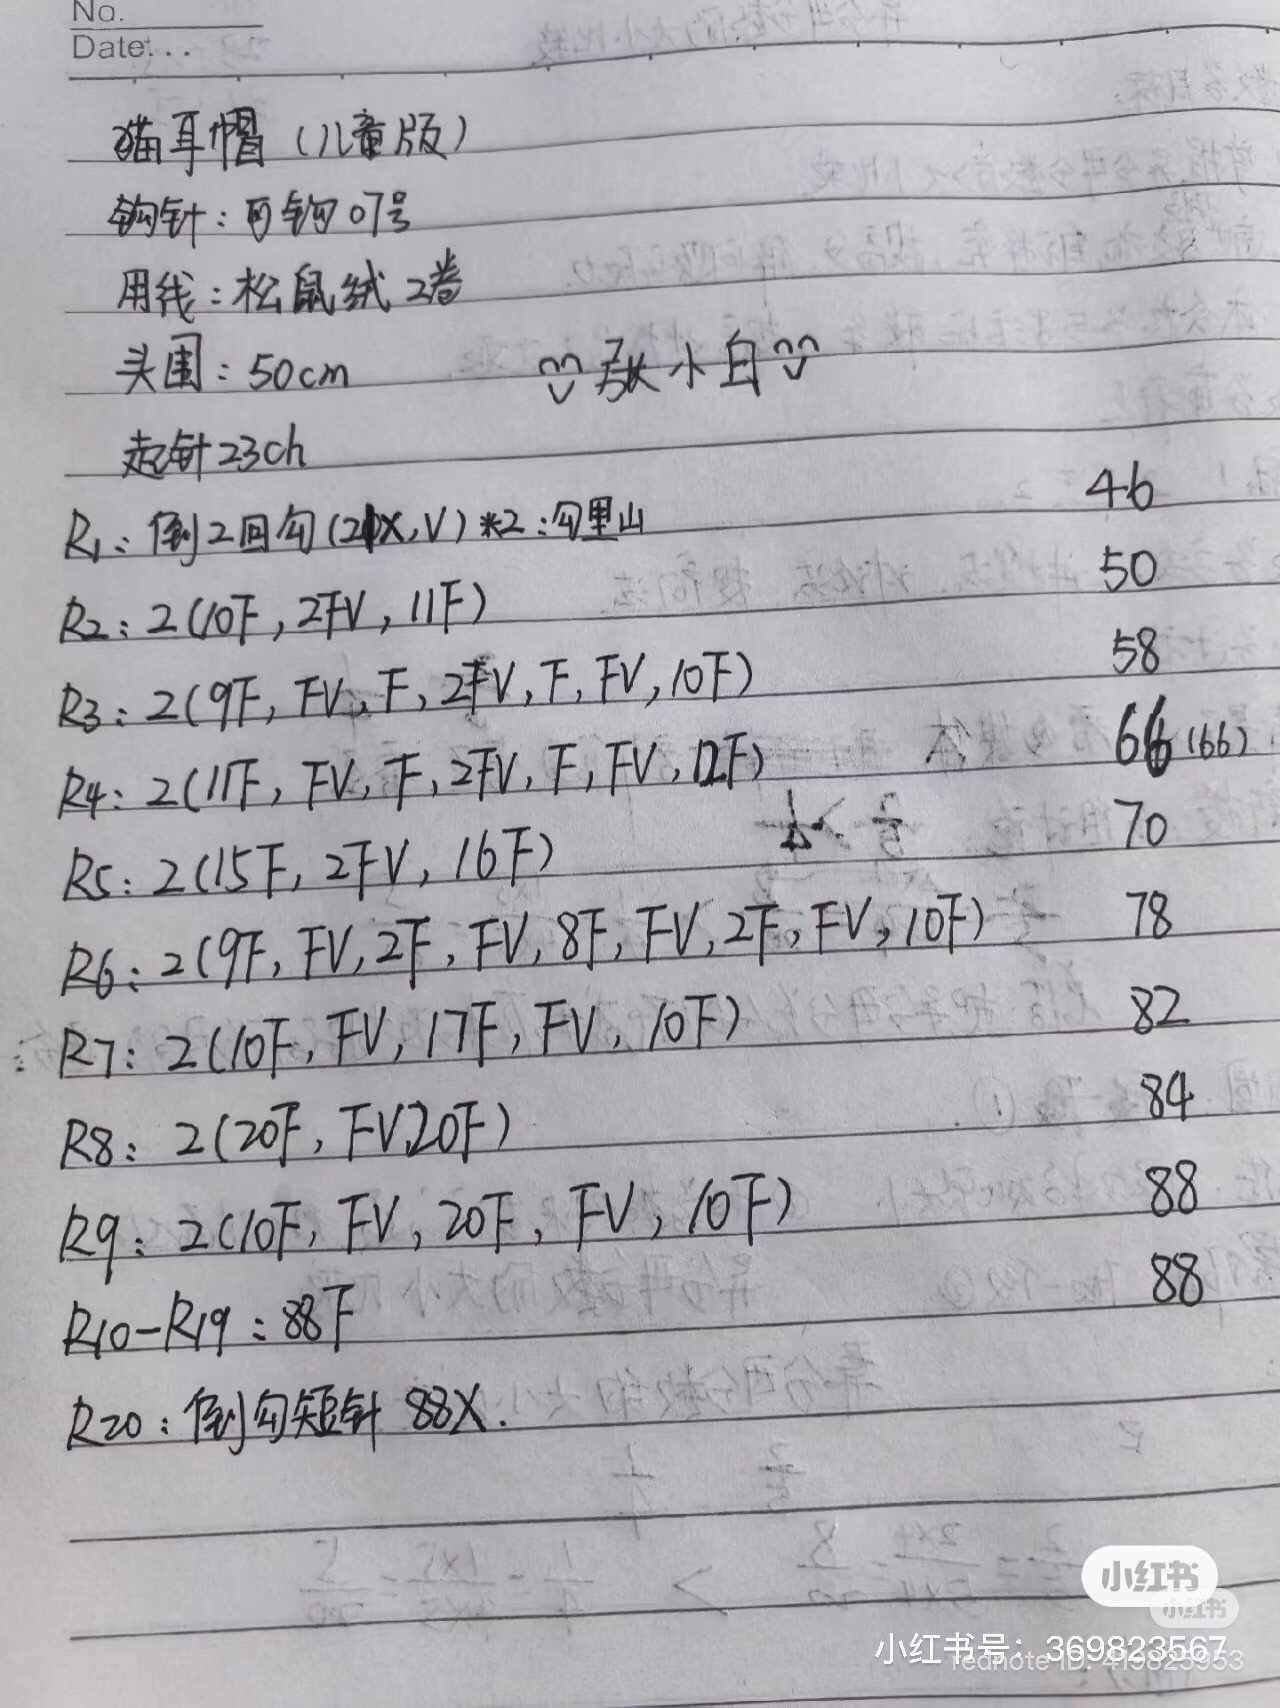 No.
Date: . .
猫耳帽（儿童版）
钩针：可钩07号
用线：松鼠绒2卷
头围：50cm
张小白
起针23ch
R1：倒2回勾(21X,V)*2：勾里山 46
R2：2(10F,2FV,11F) 50
R3：2(9F,FV,F,2FV,F,FV,10F) 58
R4：2(11F,FV,F,2FV,F,FV,12F) 66(66)
R5：2(15F,2FV,16F) 70
R6：2(9F,FV,2F,FV,8F,FV,2F,FV,10F) 78
R7：2(10F,FV,17F,FV,10F) 82
R8：2(20F,FV,20F) 84
R9：2(10F,FV,20F,FV,10F) 88
R10-R19：88F 88
R20：倒勾短针 88X.
小红书
小红书
小红书号：369823567
rednote ID: 419825953